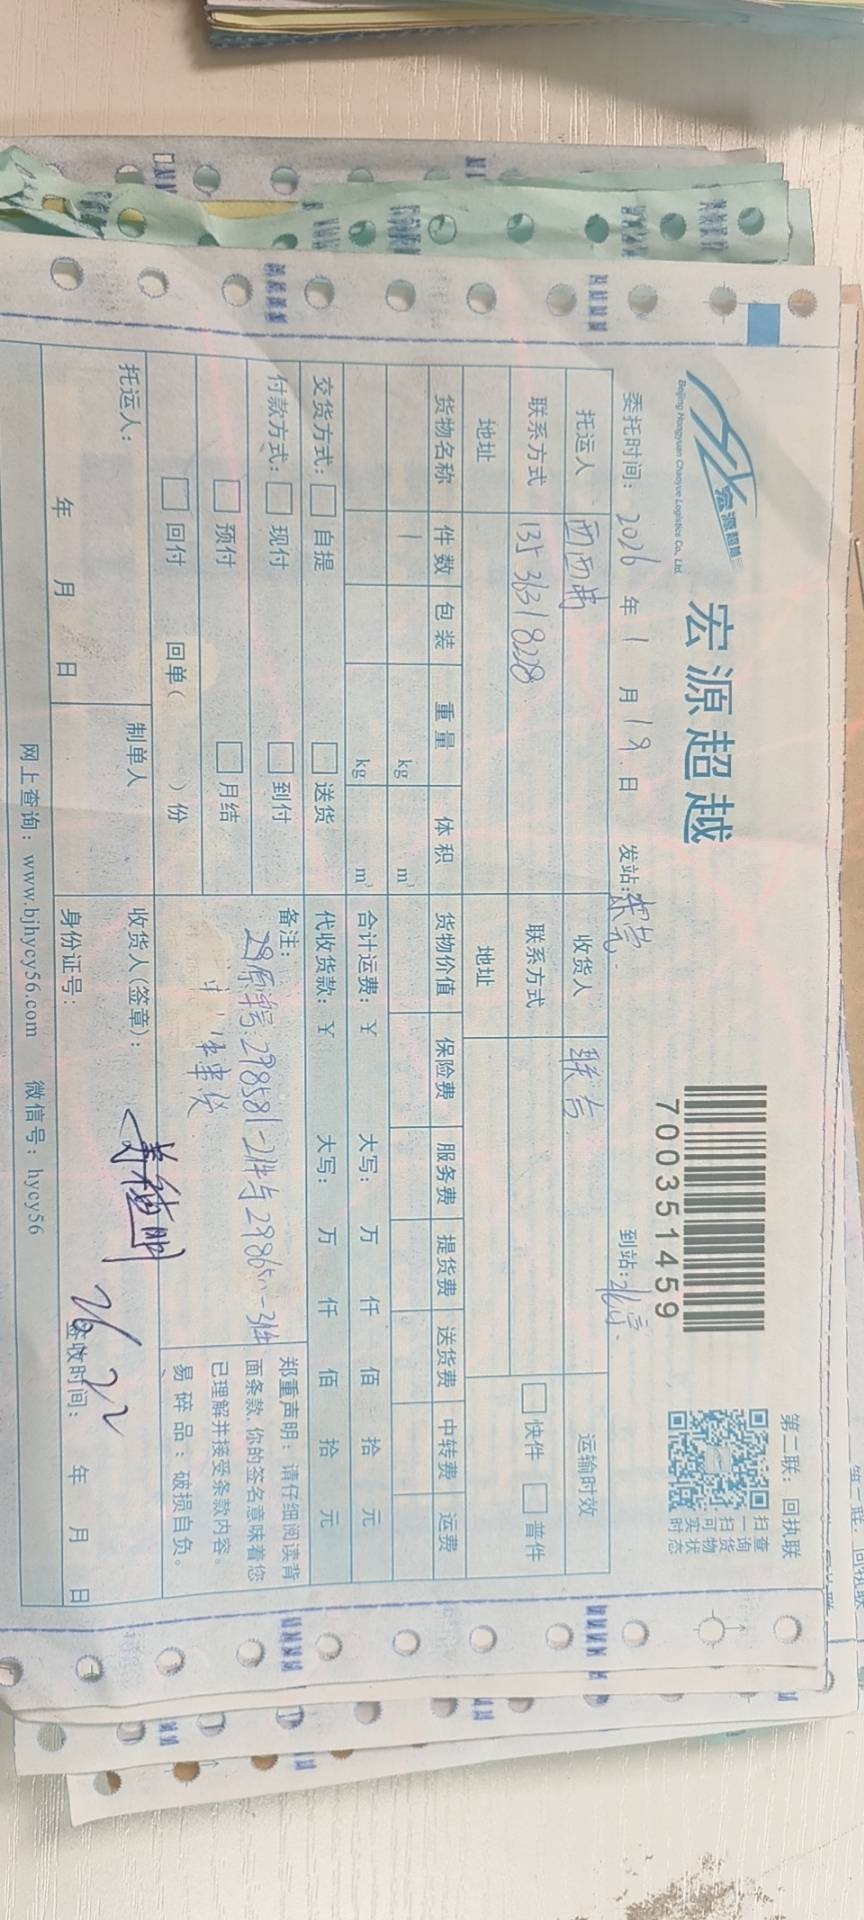 宏源超越
Beijing Hongyuan Chaoyue Logistics Co., Ltd.
宏源超越
7003514​59
第二联：回执联
扫查
一询
扫货
可物
实状
时态
委托时间：2026 年 1 月 19 日 发站： 到站：北京
托运人 西西弗 收货人 联言 运输时效
联系方式 13533318228 联系方式 快件 普件
地址 地址
货物名称 件数 包装 重量 体积 货物价值 保险费 服务费 提货费 送货费 中转费 运费
1 kg m³
kg m³ 合计运费：¥ 大写： 万 仟 佰 拾 元
交货方式： 自提 送货 代收货款：¥ 大写： 万 仟 佰 拾 元
付款方式： 现付 到付 备注：
预付 月结 29原单号:298581-2件与298650-3件
回付 回单（ ）份
郑重声明：请仔细阅读背
面条款，你的签名意味着您
已理解并接受条款内容。
易碎品：破损自负。
托运人： 制单人 收货人(签章)：
年 月 日 身份证号： 26 签收时间： 年 月 日
网上查询：www.bjhycy56.com 微信号：hycy56